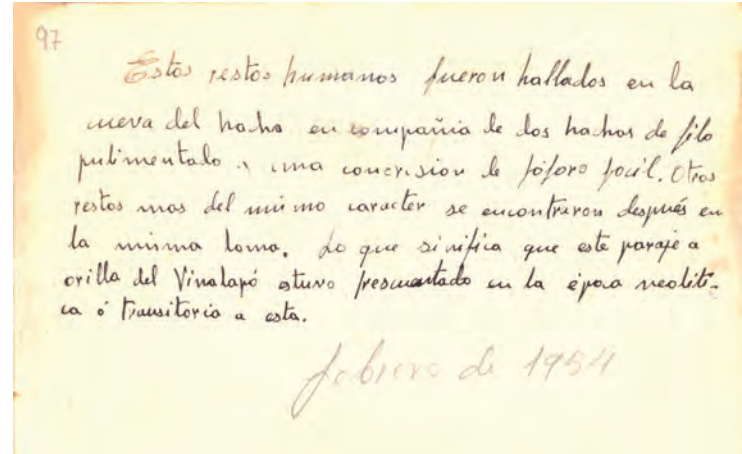 97
Estos restos humanos fueron hallados en la
cueva del hacha en compañia de dos hachas de filo
pulimentado y una concrision de fóforo focil. Otros
restos mas del mismo caracter se encontraron después en
la misma loma. Lo que sinifica que este paraje a
orilla del Vinalapó estuvo frescuentado en la época neolíti-
ca ó transitoria a esta.
febrero de 1954